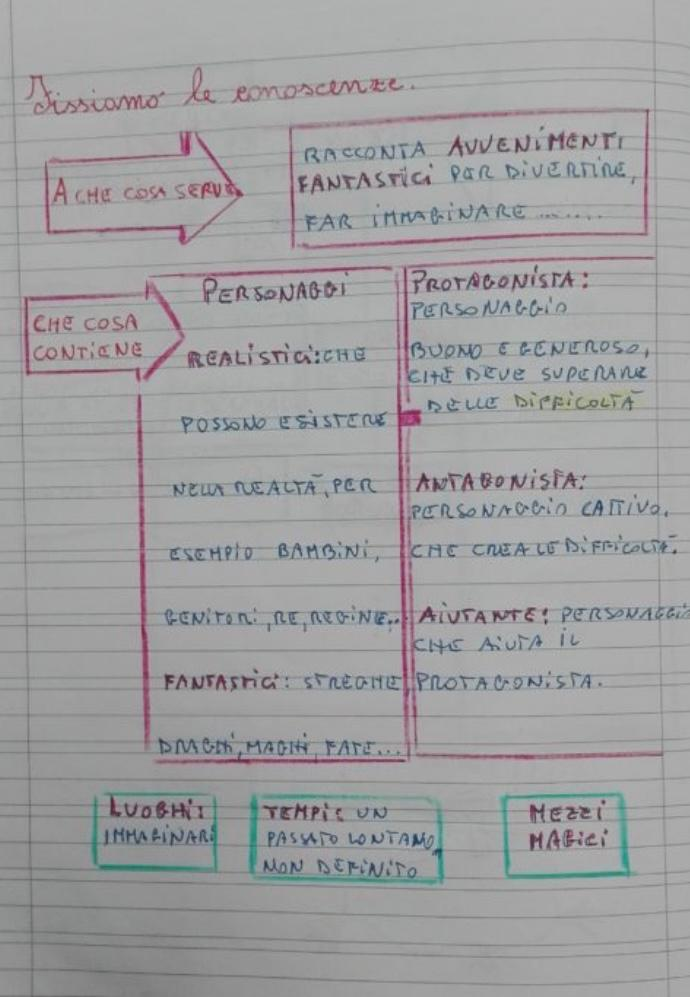 Fissiamo le conoscenze.
A CHE COSA SERVE
RACCONTA AVVENIMENTI
FANTASTICI PER DIVERTIRE,
FAR IMMAGINARE ........
CHE COSA
CONTIENE
PERSONAGGI
REALISTICI: CHE
POSSONO ESISTERE
NELLA REALTÀ, PER
ESEMPIO BAMBINI,
GENITORI, RE, REGINE..
FANTASTICI: STREGHE,
DRAGHI, MAGHI, FATE...
PROTAGONISTA:
PERSONAGGIO
BUONO E GENEROSO,
CHE DEVE SUPERARE
DELLE DIFFICOLTÀ
ANTAGONISTA:
PERSONAGGIO CATTIVO,
CHE CREA LE DIFFICOLTÀ.
AIUTANTE: PERSONAGGIO
CHE AIUTA IL
PROTAGONISTA.
LUOGHI:
IMMAGINARI
TEMPI: UN
PASSATO LONTANO,
NON DEFINITO
MEZZI
MAGICI